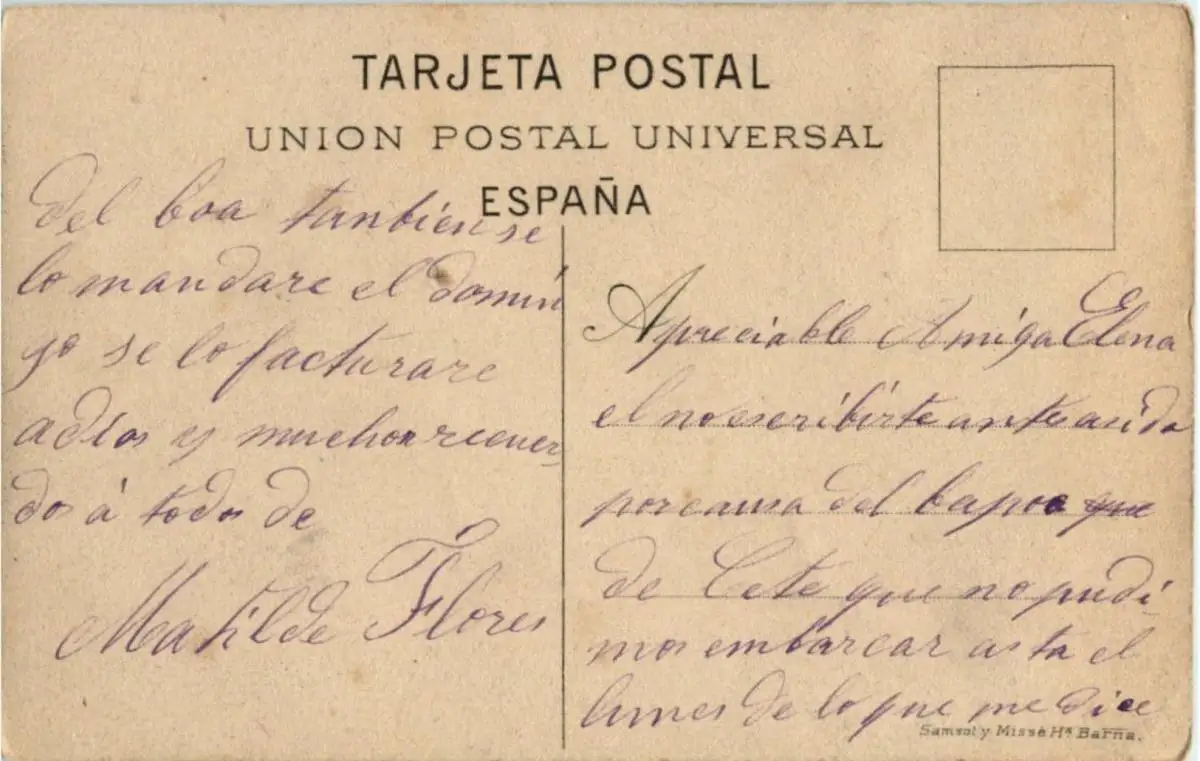 TARJETA POSTAL
UNION POSTAL UNIVERSAL
ESPAÑA
Apreciable Amiga Elena
el no escribirte antes a sido
por causa del bapor que
de Cete que no pudi
mos embarcar asta el
lunes de lo que me dice
del boa tanbien se
lo mandare el domin
go se lo facturare
adios y muchos recuer
dos á todos de
Matilde Flores
Samsot y Missé Hs Barna.